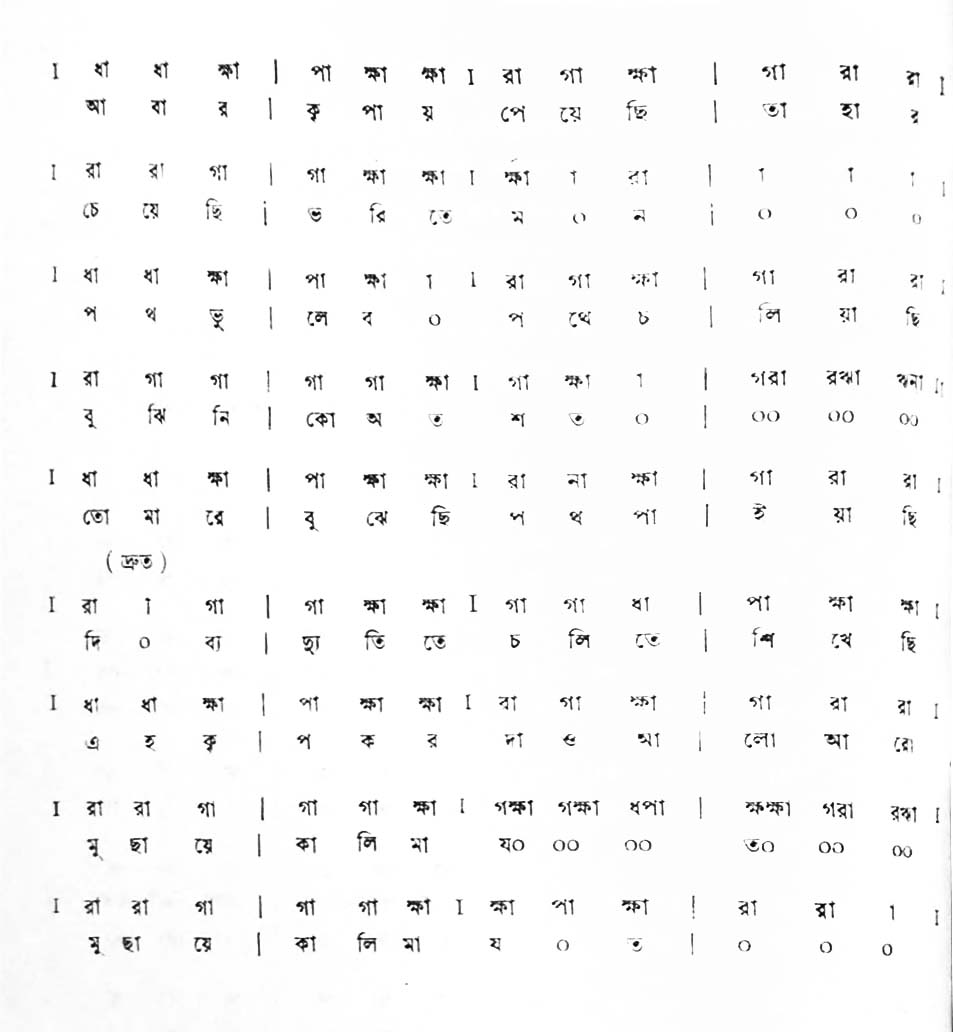 I ধা ধা ক্ষা | পা ক্ষা ক্ষা I রা গা ক্ষা | গা রা রা I
আ বা র | কৃ পা য় পে য়ে ছি | তা হা র
I রা রা গা | গা ক্ষা ক্ষা I ক্ষা া রা | া া া I
চে য়ে ছি | ভ রি তে ম ০ ন | ০ ০ ০
I ধা ধা ক্ষা | পা ক্ষা া I রা গা ক্ষা | গা রা রা I
প থ ভু | লে ব ০ প থে চ | লি য়া ছি
I রা গা গা | গা গা ক্ষা I গা ক্ষা া | গরা রঋা ঋনা II
বু ঝি নি | কো অ ত শ ত ০ | ০০ ০০ ০০
I ধা ধা ক্ষা | পা ক্ষা ক্ষা I রা না ক্ষা | গা রা রা I
তো মা রে | বু ঝে ছি প থ পা | ই য়া ছি
(দ্রুত)
I রা া গা | গা ক্ষা ক্ষা I গা গা ধা | পা ক্ষা ক্ষা I
দি ০ ব্য | ছ্যু তি তে চ লি তে | শি খে ছি
I ধা ধা ক্ষা | পা ক্ষা ক্ষা I রা গা ক্ষা | গা রা রা I
এ হ কৃ | প ক র দা ও আ | লো আ রো
I রা রা গা | গা গা ক্ষা I গক্ষা গক্ষা ধপা | ক্ষক্ষা গরা রঋা I
মু ছা য়ে | কা লি মা য০ ০০ ০০ ত০ ০০ ০০
I রা রা গা | গা গা ক্ষা I ক্ষা পা ক্ষা | রা রা া I
মু ছা য়ে | কা লি মা য ০ ত | ০ ০ ০